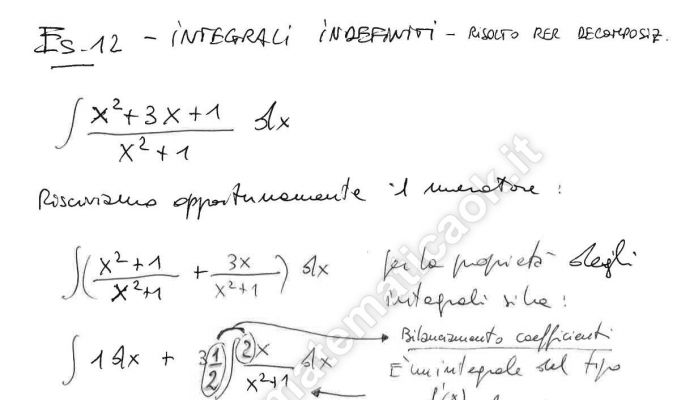 Es.12 - INTEGRALI INDEFINITI - RISOLTO PER DECOMPOSIZ.
∫ (x²+3x+1)/(x²+1) dx
Riscriviamo opportunamente il numeratore :
∫ ( (x²+1)/(x²+1) + 3x/(x²+1) ) dx per la proprietà degli
integrali si ha :
∫ 1 dx + 3 1/2 ∫ 2x/(x²+1) dx Bilanciamento coefficienti
E' un integrale del tipo
f'(x)
matematicaok.it